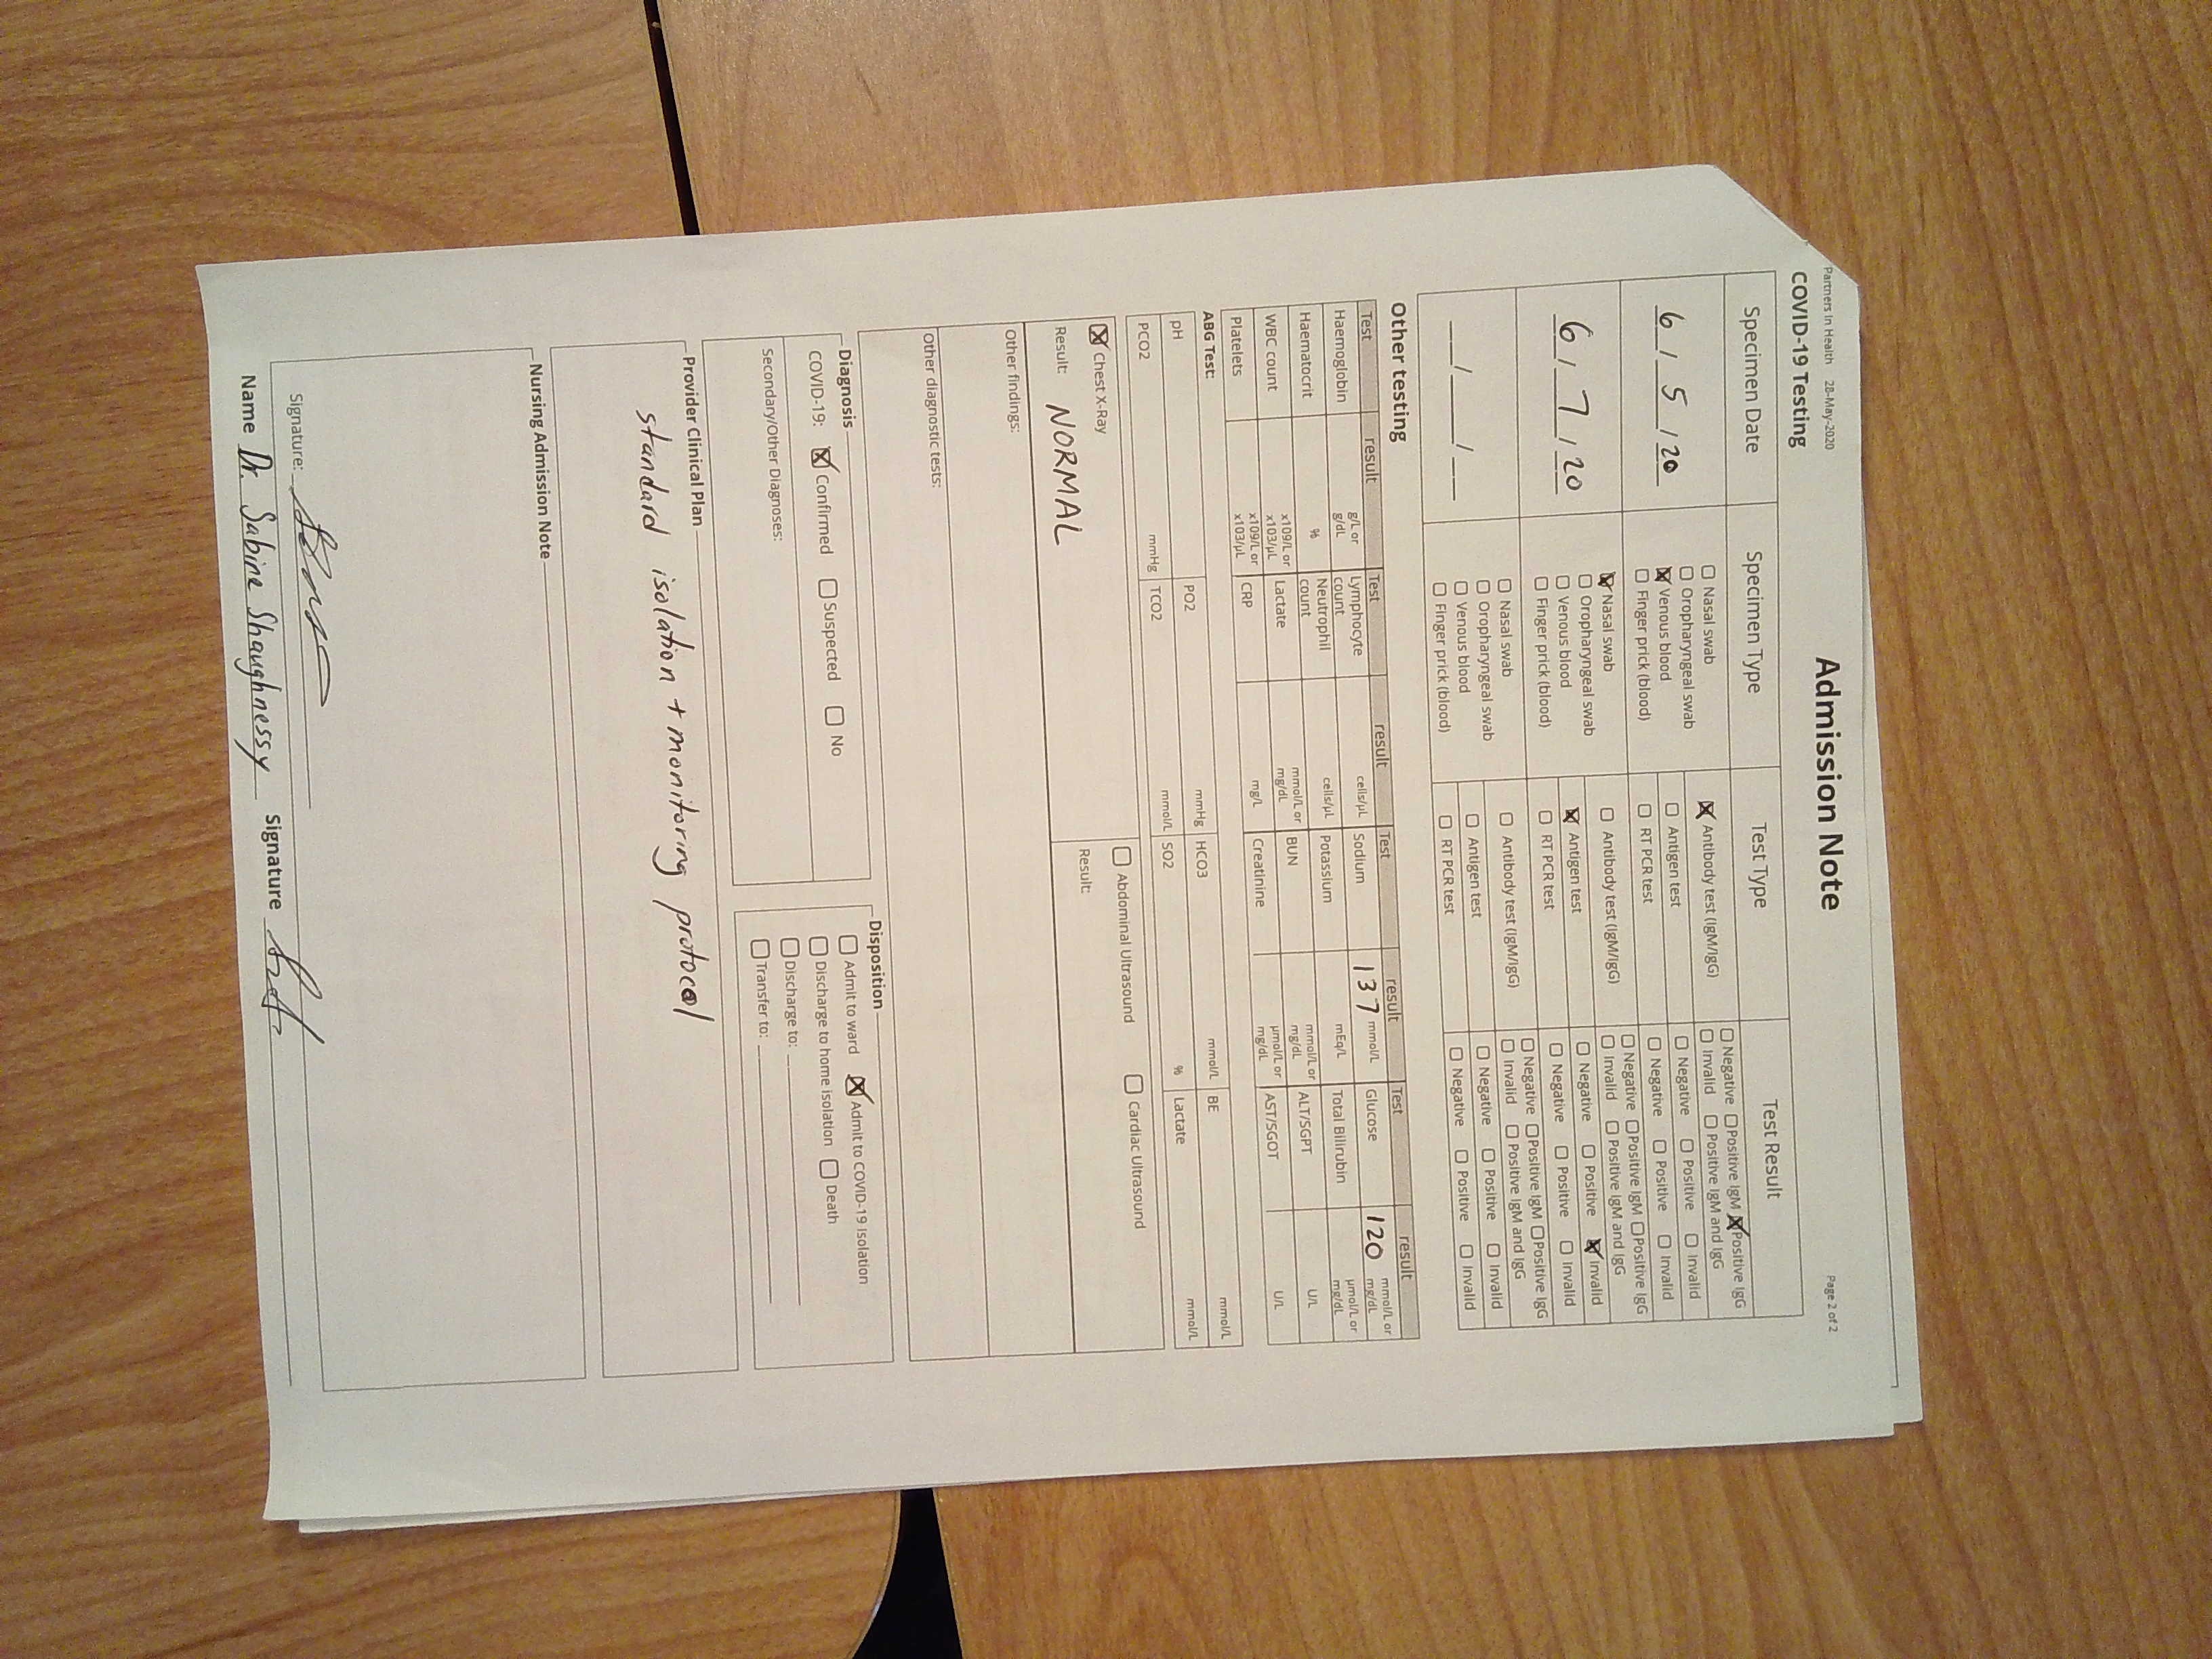 Partners In Health 28-May-2020
Admission Note
Page 2 of 2
COVID-19 Testing
Specimen Date Specimen Type Test Type Test Result
6 / 5 / 20
☐ Nasal swab
☐ Oropharyngeal swab
☒ Venous blood
☐ Finger prick (blood)
☒ Antibody test (IgM/IgG) ☐ Negative ☐ Positive IgM ☒ Positive IgG
☐ Invalid ☐ Positive IgM and IgG
☐ Antigen test ☐ Negative ☐ Positive ☐ Invalid
☐ RT PCR test ☐ Negative ☐ Positive ☐ Invalid
6 / 7 / 20
☒ Nasal swab
☐ Oropharyngeal swab
☐ Venous blood
☐ Finger prick (blood)
☐ Antibody test (IgM/IgG) ☐ Negative ☐ Positive IgM ☐ Positive IgG
☐ Invalid ☐ Positive IgM and IgG
☒ Antigen test ☐ Negative ☐ Positive ☒ Invalid
☐ RT PCR test ☐ Negative ☐ Positive ☐ Invalid
__ / __ / __
☐ Nasal swab
☐ Oropharyngeal swab
☐ Venous blood
☐ Finger prick (blood)
☐ Antibody test (IgM/IgG) ☐ Negative ☐ Positive IgM ☐ Positive IgG
☐ Invalid ☐ Positive IgM and IgG
☐ Antigen test ☐ Negative ☐ Positive ☐ Invalid
☐ RT PCR test ☐ Negative ☐ Positive ☐ Invalid
Other testing
Test result Test result Test result Test result
Haemoglobin g/L or g/dL Lymphocyte count cells/µL Sodium 137 mmol/L Glucose 120 mmol/L or mg/dL
Haematocrit % Neutrophil count cells/µL Potassium mEq/L Total Bilirubin µmol/L or mg/dL
WBC count x109/L or x103/µL Lactate mmol/L or mg/dL BUN mmol/L or mg/dL ALT/SGPT U/L
Platelets x109/L or x103/µL CRP mg/L Creatinine µmol/L or mg/dL AST/SGOT U/L
ABG Test:
pH PO2 mmHg HCO3 mmol/L BE mmol/L
PCO2 mmHg TCO2 mmol/L SO2 % Lactate mmol/L
☒ Chest X-Ray ☐ Abdominal Ultrasound ☐ Cardiac Ultrasound
Result: NORMAL Result:
Other findings:
Other diagnostic tests:
Diagnosis
COVID-19: ☒ Confirmed ☐ Suspected ☐ No
Secondary/Other Diagnoses:
Disposition
☐ Admit to ward ☒ Admit to COVID-19 Isolation
☐ Discharge to home isolation ☐ Death
☐ Discharge to:
☐ Transfer to:
Provider Clinical Plan
standard isolation + monitoring protocol
Nursing Admission Note
Signature:
Name Dr. Sabine Shaughnessy Signature